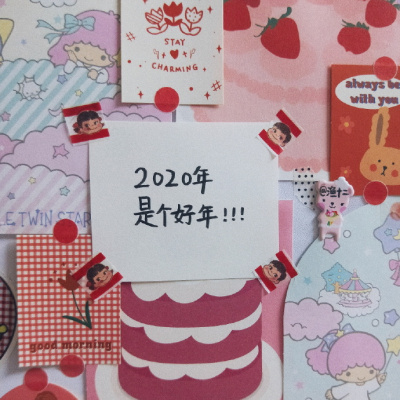 STAY
CHARMING
always be
with you
2020年
是个好年!!!
@渔十二
LE TWIN STAR
good morning